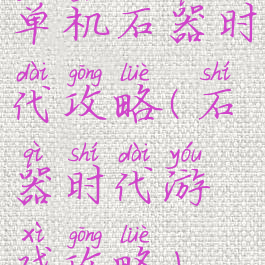 单机石器时
dài gōng lüè shí
代攻略(石
qì shí dài yóu
器时代游
xì gōng lüè
戏攻略)